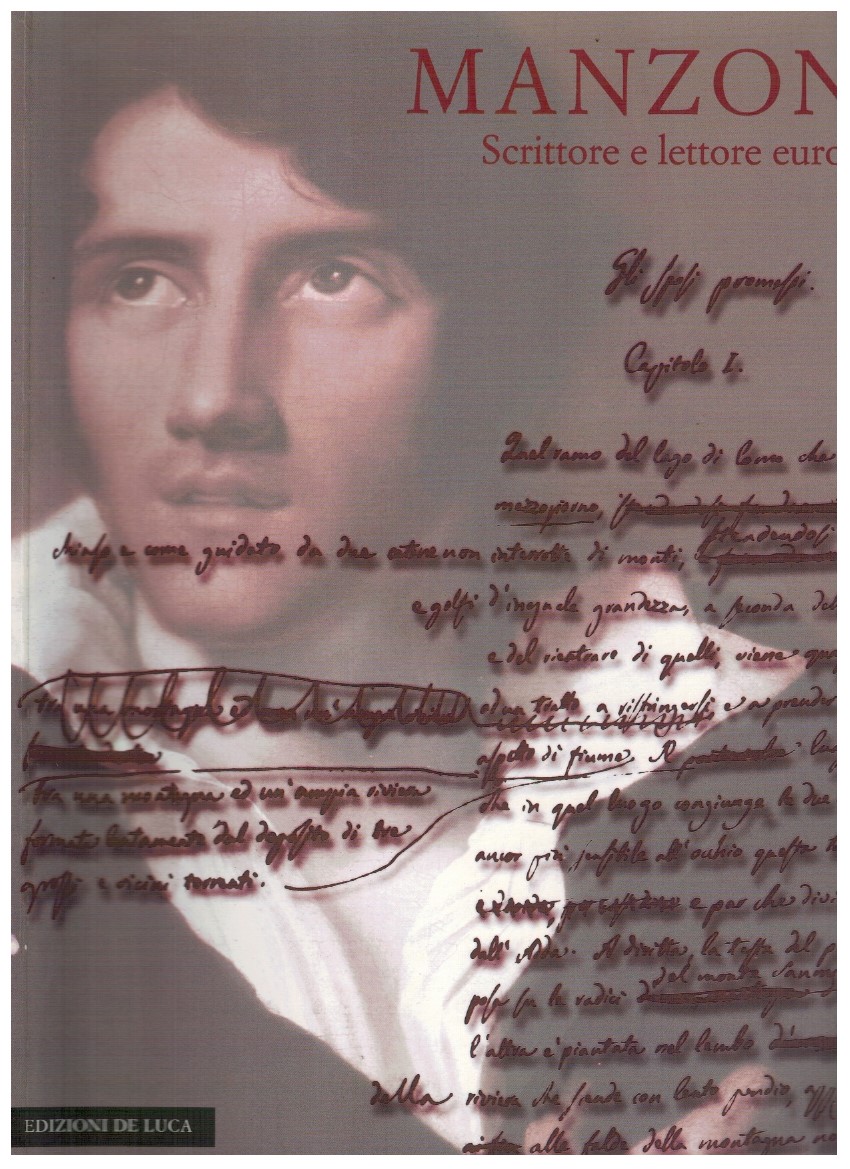 MANZON
Scrittore e lettore euro
Gli Sposi promessi.
Capitolo I.
Quel ramo del lago di Como che
mezzogiorno,
stendendosi
chiuso e come guidato da due catene non interrotte di monti,
e golfi d'ineguale grandezza, a seconda del
e del rientrare di quelli, viene
ed un tratto a ristringersi e a prender
aspetto di fiume. Il
tra una montagna ed un'ampia riviera
che in quel luogo congiunge le due
formata lentamente dal deposito di tre
ancor più sensibile all'occhio questa
grossi e vicini torrenti.
e par che
dall'Adda. A diritta, la
del monte San
posa su le radici
l'altra è piantata nel lembo
della riviera che scende con lento pendio,
alle falde della montagna
EDIZIONI DE LUCA